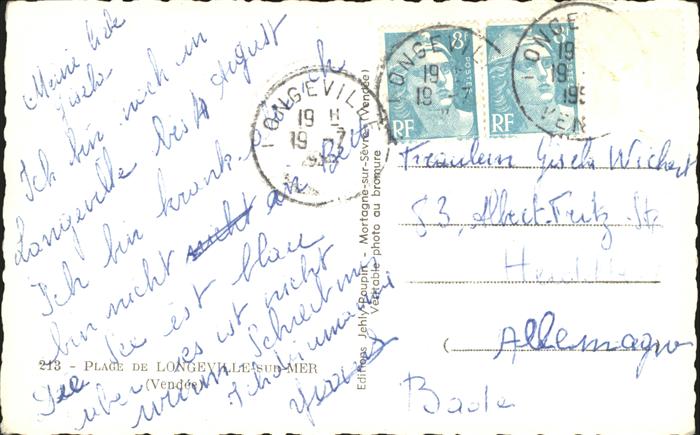 Meine liebe
Gisela
Ich bin noch in
Longeville bis 4 August
Ich bin krank.
bin nicht an Bett
See est blau
uber es ist nicht
warm Schreibt mir
Yves
213 - PLAGE DE LONGEVILLE-SUR-MER
(Vendée)
Editions Jehly-Poupin - Mortagne-sur-Sèvre (Vendée)
Véritable photo au bromure
LONGEVILLE
19 H
19 -7
8F
POSTES
RF
LONGEVILLE
19
19 -7
8F
RF
LONGE
19
19
195
VEN
Fräulein Gisela Wichert
53, Albert-Fritz-Str
Allemagne
Bade